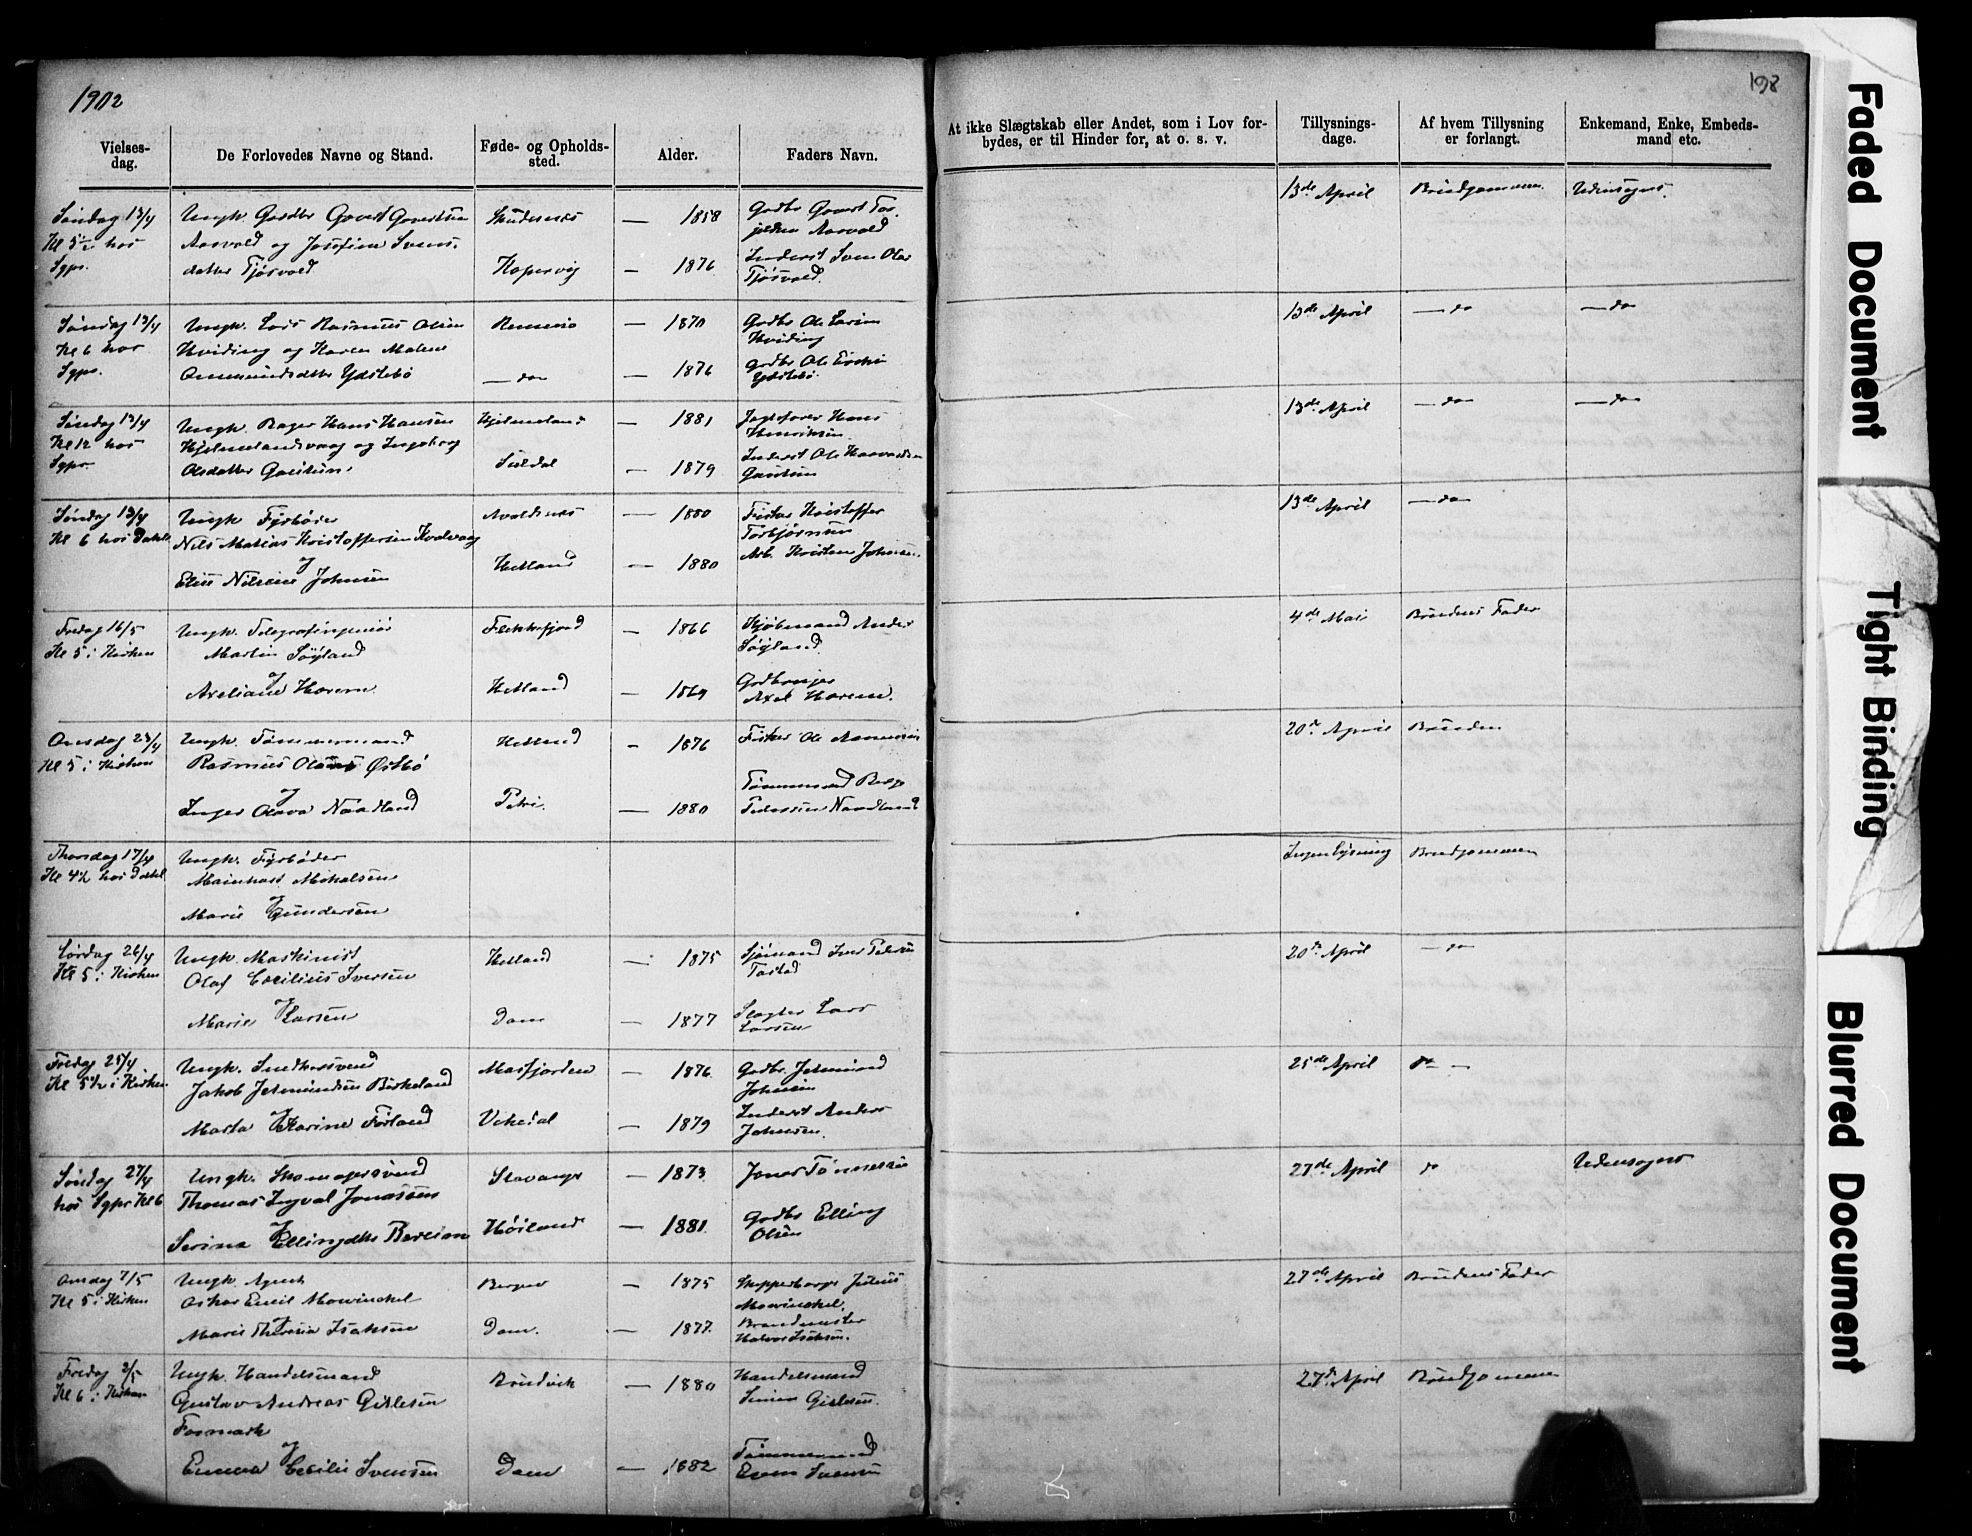 1902
198
Vielses-
dag.
De Forlovedes Navne og Stand.
Føde- og Opholds-
sted.
Alder.
Faders Navn.
At ikke Slægtskab eller Andet, som i Lov for-
bydes, er til Hinder for, at o. s. v.
Tillysnings-
dage.
Af hvem Tillysning
er forlangt.
Enkemand, Enke, Embeds-
mand etc.
Søndag 13/4
Kl 5½ hos
Sgpr.
Ungk. Gaardbr Govert Govertsen
Aasvold og Josefine Svens-
datter Tjøsvold
Skudesnes — 1858
Kopervig — 1876
Godbr Govert Tor-
jelsen Aasvold
Inderst Sven Olas
Tjøsvold.
13de April
Brudgommen
Udensogns.
Søndag 13/4
Kl 6 hos
Sgpr.
Ungk. Lars Rasmus Olsen
Hviding og Karen Malene
Ommundsdatter Ydstebø
Rennesø — 1870
— do — 1876
Godbr Ole Larsen
Hviding
Godbr Ole
Ydstebø.
13de April
— do
— do
Søndag 13/4
Kl 12 hos
Sgpr.
Ungk. Bager Hans Hansen
Hjelmelandsvaag og Ingeborg
Olsdatter Gautun
Hjelmeland — 1881
Suldal — 1879
Jagtefører Hans
Henriksen.
Inderst Ole
Gautun
13de April
— do
— do
Søndag 13/4
Kl 6 hos Dahl
Ungk Fyrbøder
Nils Matias Kristoffersen Kvalevaag
og
Elise Nilsine Johnsen
Avaldsnes — 1880
Hetland — 1880
Fisker Kristoffer
Torbjørnsen
Arb. Kristen Johnsen.
13de April
— do
Fredag 16/5
Kl 5 i Kirken
Ungk. Telegrafingeniør
Martin Søyland
og
Axeliane Haaren
Flekkefjord — 1866
Hetland — 1869
Kjøbmand Ander
Søyland.
Godbreier
Axel
4de Mai
Brudens Fader
Onsdag 23/4
Kl 5 i Kirken
Ungk. Tømmermand
Rasmus Olsen Østbø
og
Inger Olava Naadland
Hetland — 1876
Petri. — 1880
Fisker Ole
Tømmermand
Pedersen Naadland
20de April
Bruden
Thorsdag 17/4
Kl 4½ hos Dahl
Ungk. Fyrbøder
Mainhart Mikalsen
og
Marie Gundersen
Ingen lysning
Brudgommen
Lørdag 26/4
Kl 5 i Kirken
Ungk. Maskinist
Olaf Cecilius Iversen
og
Marie Larsen
Hetland — 1875
Dom — 1877
Sjømand Iver Petersen
Tastad
Slagter Lars
Larsen
20de April
— do
Fredag 25/4
Kl 5½ i Kirken
Ungk. Snedkersvend
Jakob Jetmundsen Birkeland
og
Marta Karine Førland
Masfjorden — 1876
Vikedal — 1879
Godbr. Jetmund
Johnsen
Inderst Anders
Johnsen.
25de April
do —
Søndag 27/4
hos Sgpr Kl 6
Ungk. Skomagersvend
Thomas Ingval Jonassen
og
Serina Ellingsdtr
Stavanger — 1873
Høiland — 1881
Jonas Tønnessen
Godbr Elling
Olsen
27de April
do
Udensogns
Onsdag 7/5
Kl 5 i Kirken
Ungk. Agent
Oskar Emil Mowinckel
og
Marie Theresia Isaksen
Bergen — 1875
Dom. — 1877
Mowinckel.
Brandmester
Halvor Isaksen.
27de April
Brudens Fader
Fredag 2/5
Kl 6 i Kirken
Ungk. Handelsmand
Gustav Andreas Gislesen
Formark
og
Emma Cecilie Svensen
Brudvik — 1880
Dom — 1882
Handelsmand
Simon Gislesen.
Tømmermand
Sven Svensen
27de April
Brudgommen
Faded Document
Tight Binding
Blurred Document